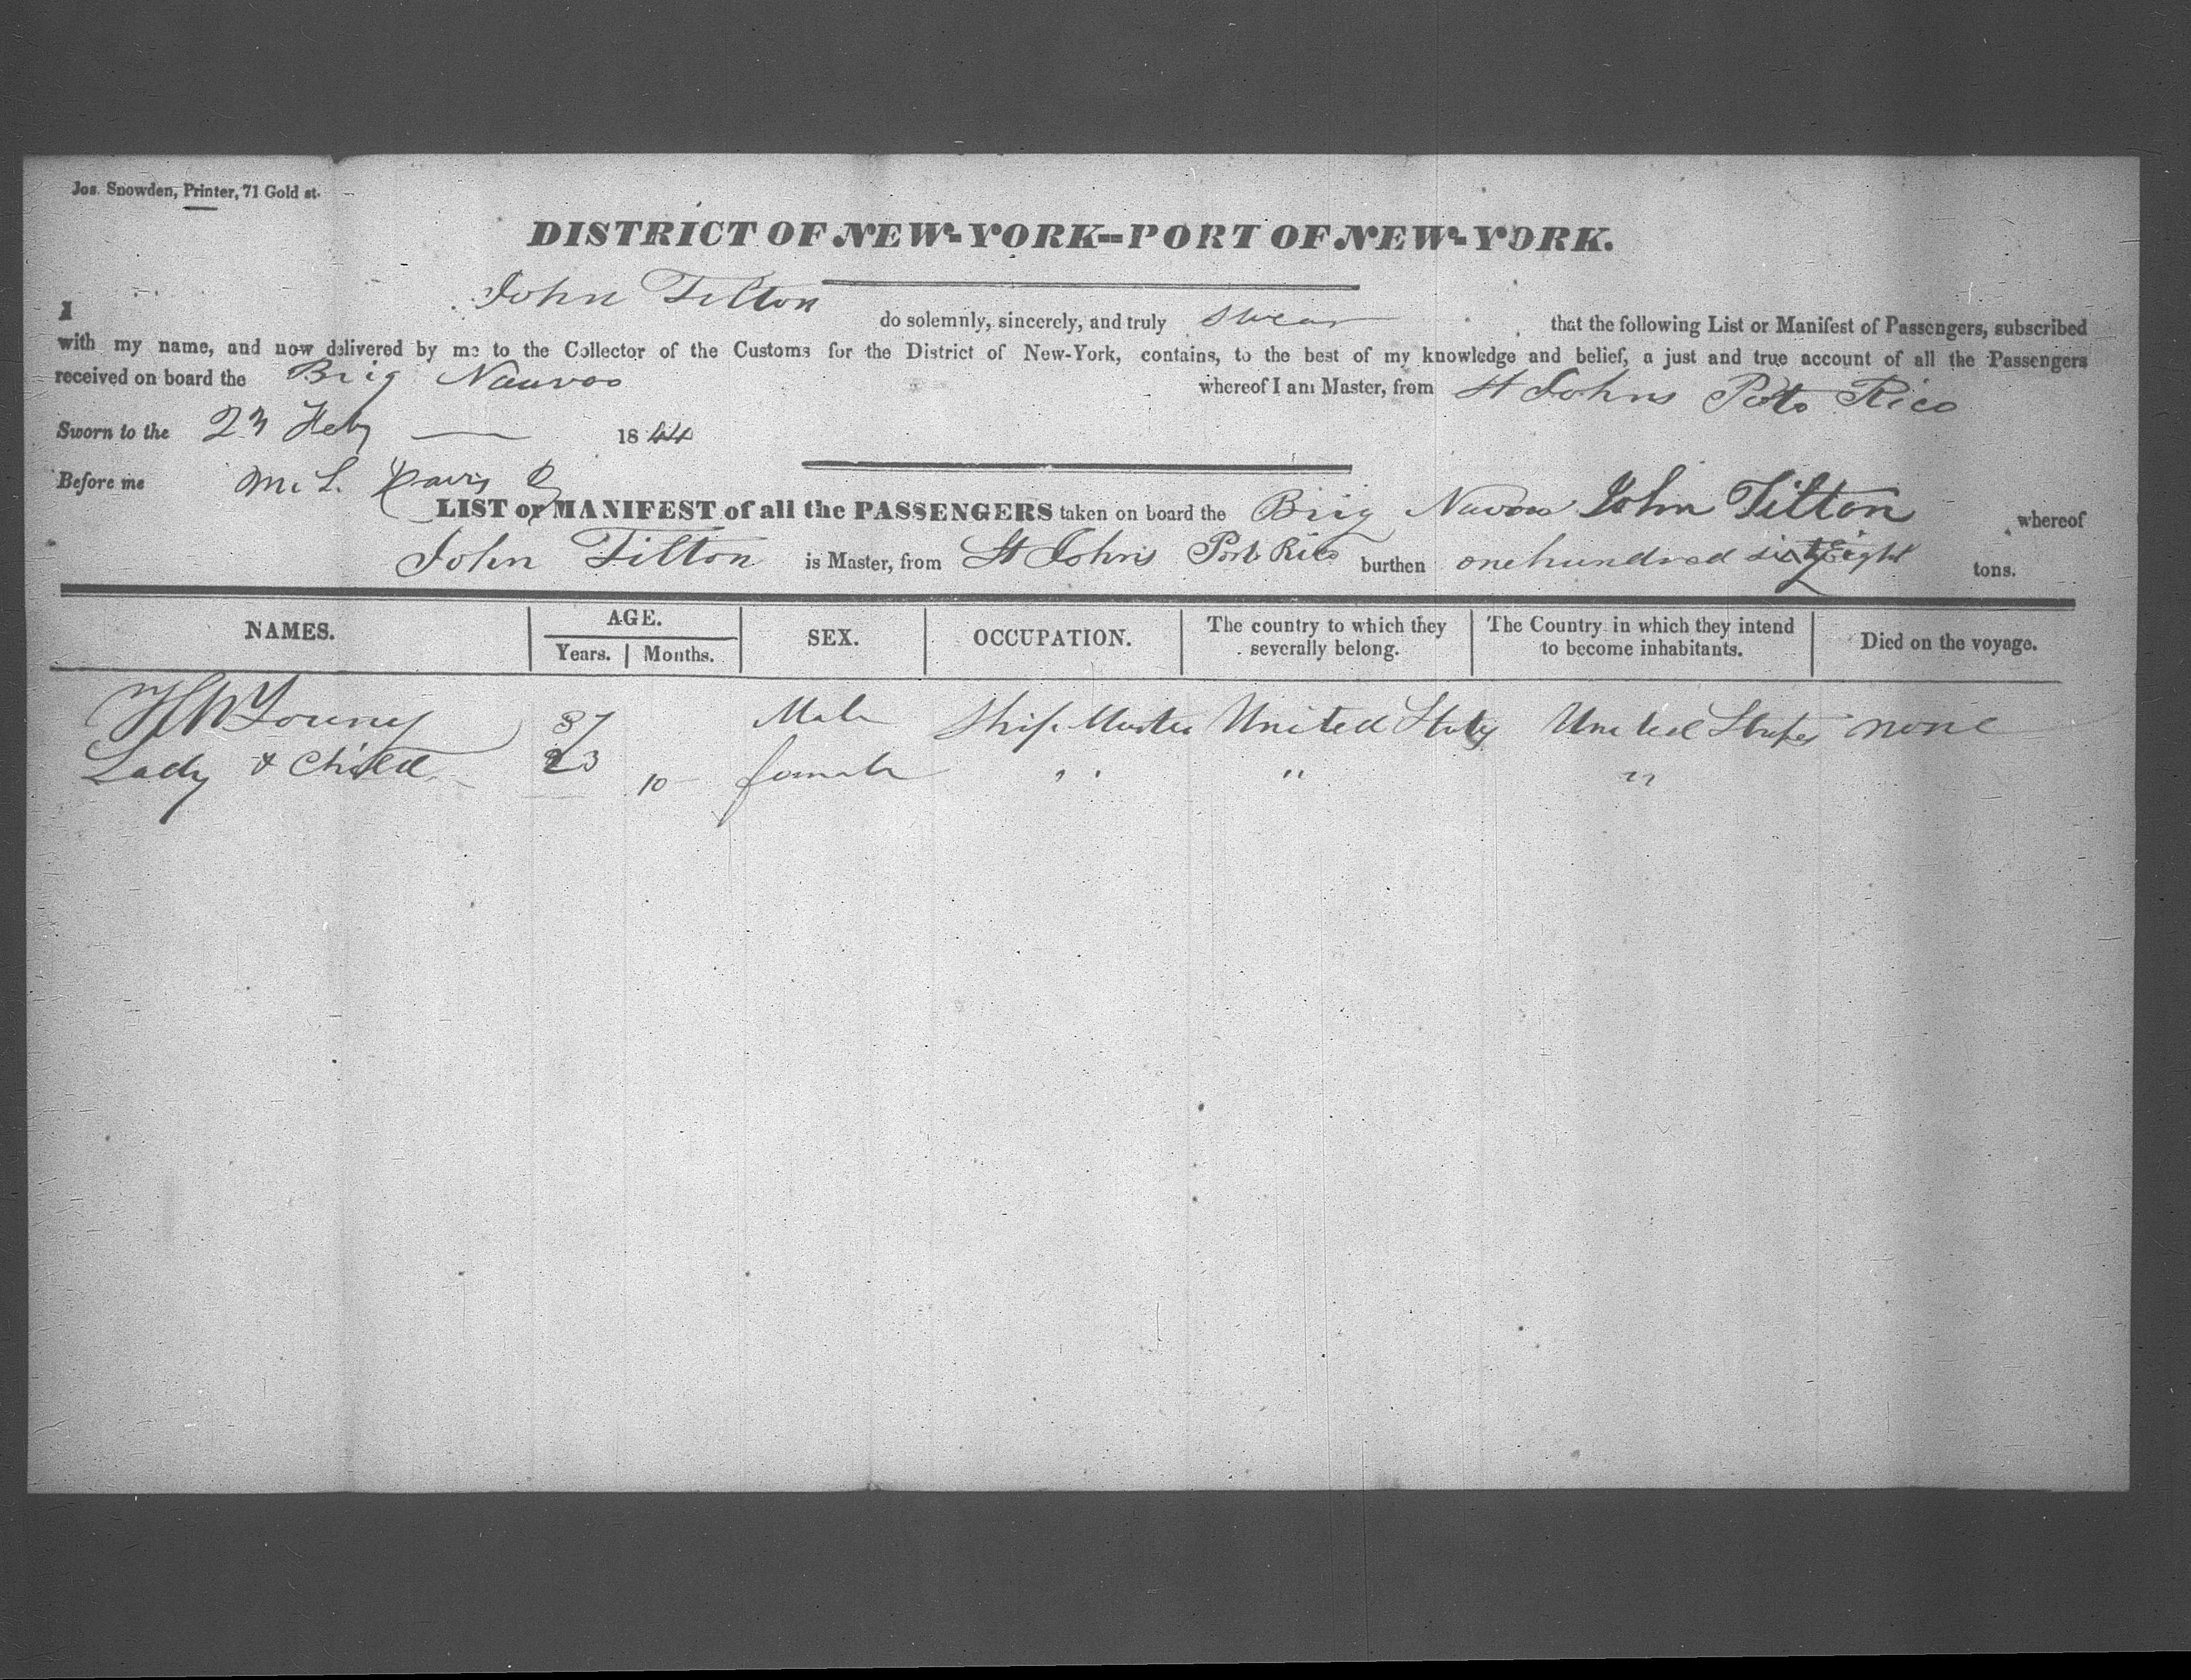 Jos. Snowden, Printer, 71 Gold st.
DISTRICT OF NEW-YORK--PORT OF NEW-YORK.
I John Tilton do solemnly, sincerely, and truly swear that the following List or Manifest of Passengers, subscribed
with my name, and now delivered by me to the Collector of the Customs for the District of New-York, contains, to the best of my knowledge and belief, a just and true account of all the Passengers
received on board the Brig Nauvoo whereof I am Master, from St Johns Porto Rico
Sworn to the 23 Feby 1844
Before me M. L. Davis
LIST or MANIFEST of all the PASSENGERS taken on board the Brig John Tilton whereof
John Tilton is Master, from St Johns Porto Rico burthen one hundred sixty Eight tons.
NAMES. AGE. Years. Months. SEX. OCCUPATION. The country to which they severally belong. The Country in which they intend to become inhabitants. Died on the voyage.
H W Young 37 Male Ship Master United States United States none
Lady & Child 23 10 female " " "